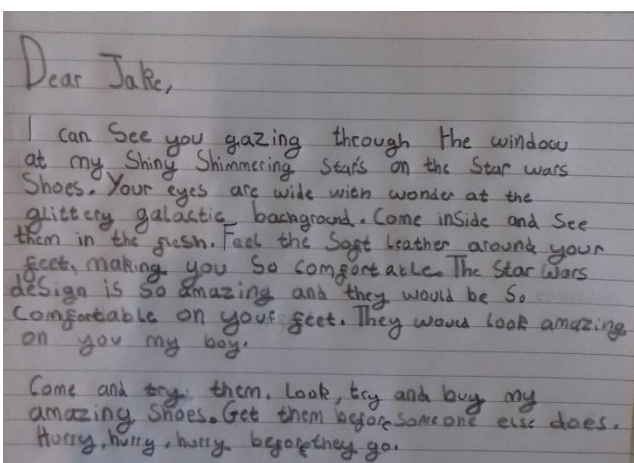 Dear Jake,
I can See you gazing through the window
at my Shiny Shimmering Stars on the Star wars
Shoes. Your eyes are wide with wonder at the
glittery galactic bacnground. Come inSide and See
them in the flesh. Feel the Soft leather around your
feet, making you So comfortable. The Star Wars
deSign is So amazing and they would be So
Comfortable on your feet. They would look amazing
on you my boy.
Come and try them. Look, try and buy my
amazing Shoes. Get them before Someone else does.
Hurry, hurry, hurry before they go.